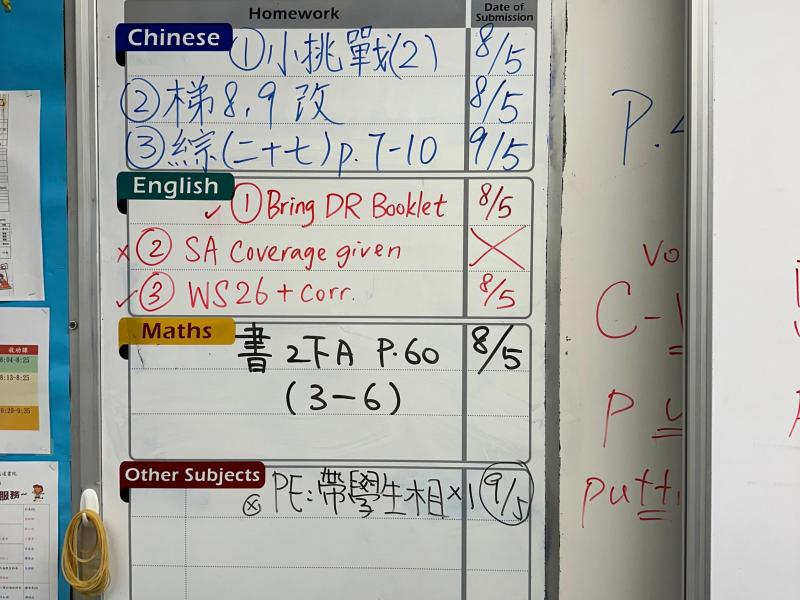 Homework
Date of Submission
Chinese
①小挑戰(2) 8/5
②梯8,9 改 8/5
③綜(二十七)p.7-10 9/5
English
✓ ①Bring DR Booklet 8/5
× ② SA Coverage given ×
✓ ③ WS26 + Corr. 8/5
Maths
書 2下A P.60 8/5
(3-6)
Other Subjects
⊗ PE:帶學生相×1 9/5
P.
vo
C-
P
putt
8:04-8:25
8:13-8:25
9:20-9:35
服務~